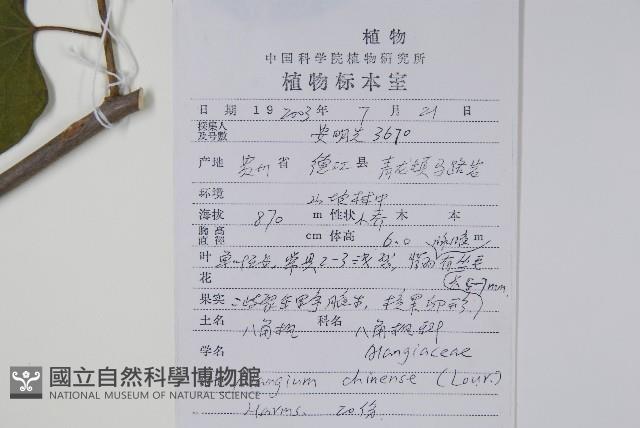 植物
中国科学院植物研究所
植物标本室
日期 19 2003 年 7 月 21 日
採集人
及号數 安明先 3670
产地 贵州 省 德江 县 青龙镇
环境 山地林中
海拔 870 m 性状 小乔木 本
胸高
直径 cm 体高 6.0 m
叶 单叶互生, 常具2-3浅裂,
花
果实 核果卵形
土名 八角枫 科名 八角枫科
学名 Alangiaceae
angium chinense (Lour.)
Harms. 20份
國立自然科學博物館
NATIONAL MUSEUM OF NATURAL SCIENCE